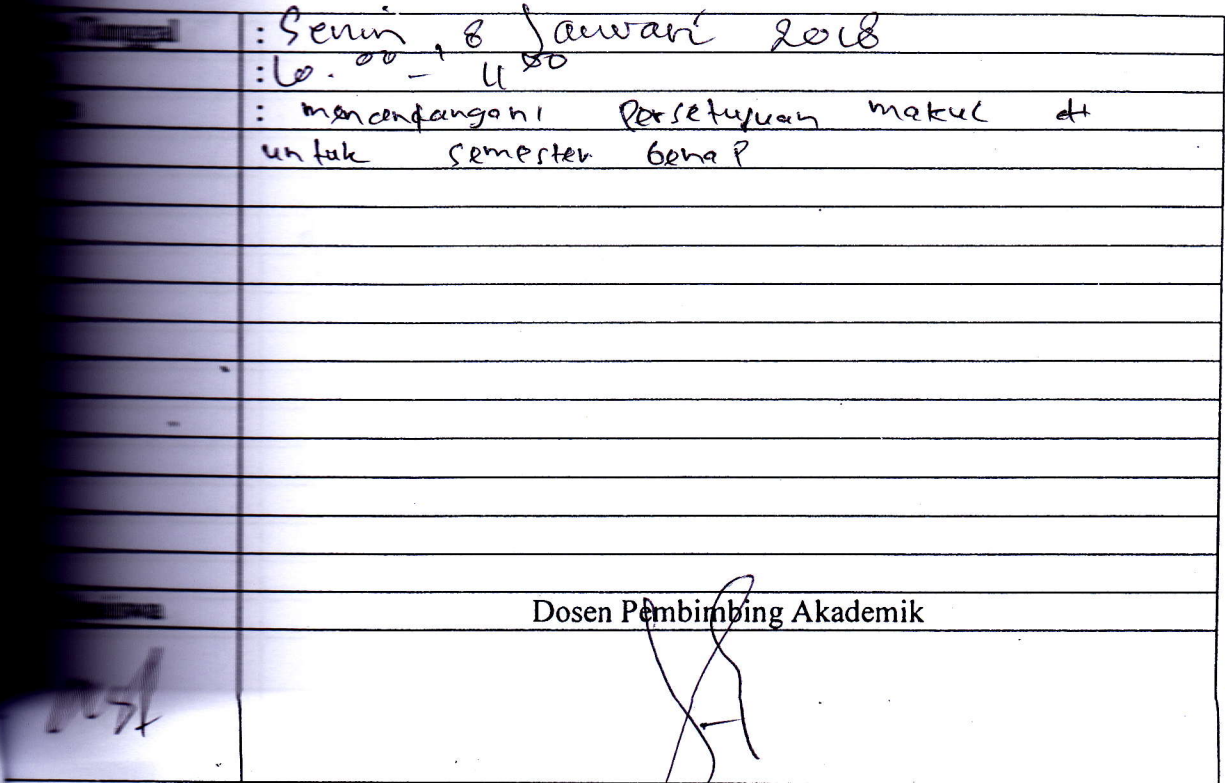 : Senin, 8 Januari 2018
: 10.00 - 11.00
: mencandangani Persetujuan makul
untuk semester Genap
Dosen Pembimbing Akademik